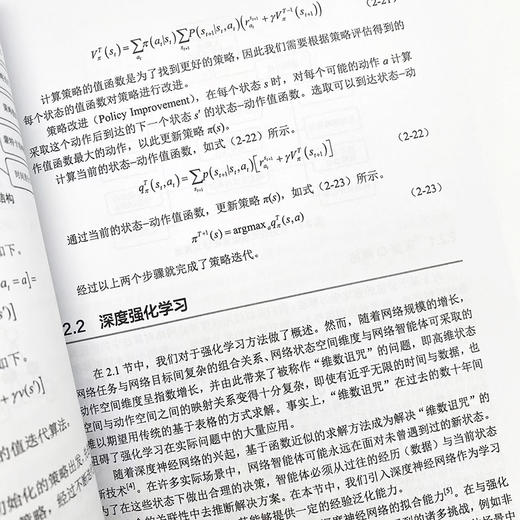 V_π^T(s_t)=∑_{a_t}π(a_t|s_t)∑_{s_{t+1}}P(s_{t+1}|s_t,a_t)(r_{a_t}^{s_{t+1}}+γV_π^{T-1}(s_{t+1})) (2-21)
计算策略的值函数是为了找到更好的策略，因此我们需要根据策略评估得到的
每个状态的值函数对策略进行改进。
策略改进（Policy Improvement），在每个状态 s 时，对每个可能的动作 a 计算
采取这个动作后到达的下一个状态 s′ 的状态–动作值函数。选取可以到达状态–动
作值函数最大的动作，以此更新策略 π(s)。
计算当前的状态–动作值函数，如式（2-22）所示。
q_π^T(s_t,a_t)=∑_{s_{t+1}}p(s_{t+1}|s_t,a_t)[r_{a_t}^{s_{t+1}}+γV_π^T(s_{t+1})] (2-22)
通过当前的状态–动作值函数，更新策略 π(s)，如式（2-23）所示。
π^{T+1}(s)=argmax_a q_π^T(s,a) (2-23)
经过以上两个步骤就完成了策略迭代。
2.2 深度强化学习
在 2.1 节中，我们对于强化学习方法做了概述。然而，随着网络规模的增长，
网络任务与网络目标间复杂的组合关系、网络状态空间维度与网络智能体可采取的
动作空间维度呈指数增长，并由此带来了被称作“维数诅咒”的问题，即高维状态
空间与动作空间之间的映射关系变得十分复杂，即使有近乎无限的时间与数据，也
难以期望用传统的基于表格的方式求解。事实上，“维数诅咒”在过去的数十年间
阻碍了强化学习在实际问题中的大量应用。
随着深度神经网络的兴起，基于函数近似的求解方法成为解决“维数诅咒”的
新技术[4]。在许多实际场景中，网络智能体可能永远在面对未曾遇到过的新状态。
为了在这些状态下做出合理的决策，智能体必须从过往的经历（数据）与当前状态
的关联性中去推断解决方案。在本节中，我们引入深度神经网络作为学习
能够提供一定的经验泛化能力。
深度神经网络的拟合能力[5]。在与强化
到的诸多挑战，例如非
结构
如下。
a_t = a]=
s′)]
如下。
γv(s′)]
的值迭代算法，
初始化的策略出发，
策略，经过不断